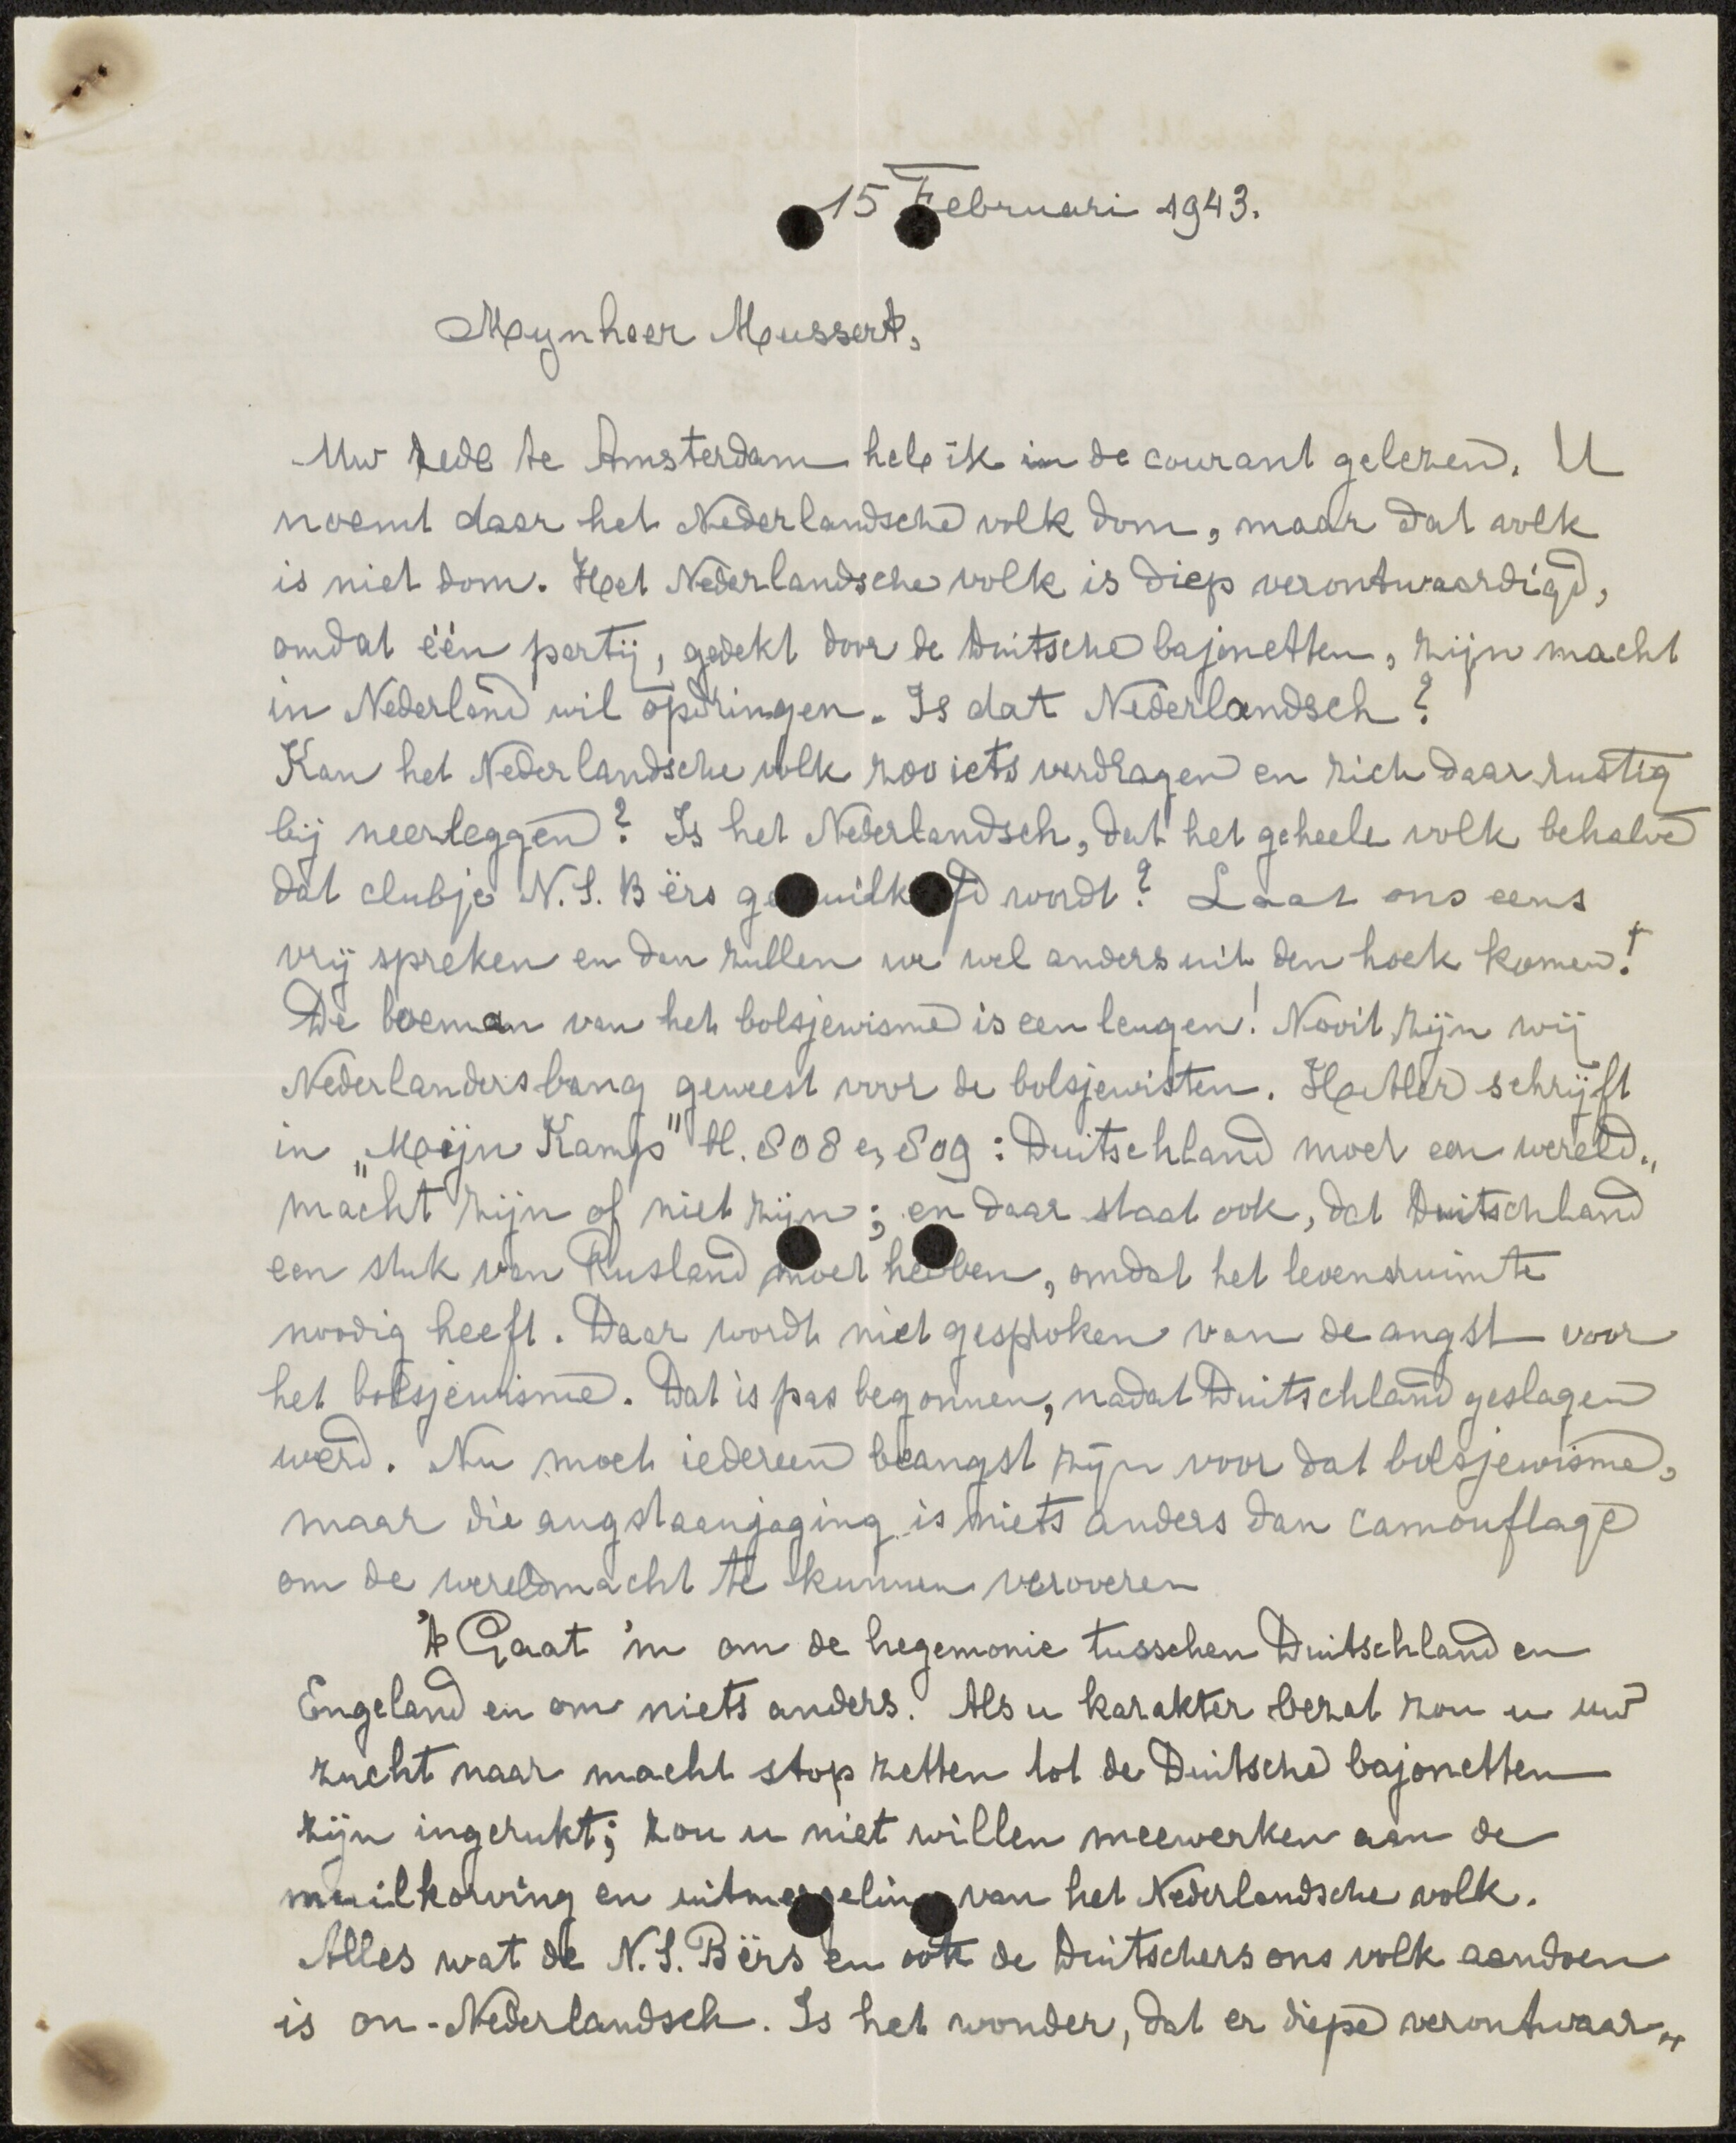 15 Februari 1943.
Mynheer Mussert,
Uw rede te Amsterdam heb ik in de courant gelezen. U
noemt daar het Nederlandsche volk dom, maar dat volk
is niet dom. Het Nederlandsche volk is diep verontwaardigd,
omdat één partij, gedekt door de Duitsche bajonetten, zijn macht
in Nederland wil opdringen. Is dat Nederlandsch?
Kan het Nederlandsche volk zoo iets verdragen en zich daar rustig
bij neerleggen? Is het Nederlandsch, dat het geheele volk behalve
dat clubje N.S.Bërs gemuilkorfd wordt? Laat ons eens
vrij spreken en dan zullen we wel anders uit den hoek komen!
De boeman van het bolsjewisme is een leugen! Nooit zijn wij
Nederlanders bang geweest voor de bolsjewisten. Hitler schrijft
in „Meijn Kamp" bl. 808 en 809: Duitschland moet een wereld„
macht zijn of niet zijn; en daar staat ook, dat Duitschland
een stuk van Rusland moet hebben, omdat het levensruimte
noodig heeft. Daar wordt niet gesproken van de angst voor
het bolsjewisme. Dat is pas begonnen, nadat Duitschland geslagen
werd. Nu moet iedereen beangst zijn voor dat bolsjewisme,
maar die angstaanjaging is niets anders dan camouflage
om de wereldmacht te kunnen veroveren
't Gaat 'm om de hegemonie tusschen Duitschland en
Engeland en om niets anders. Als u karakter bezat zou u uw
zucht naar macht stop zetten tot de Duitsche bajonetten
zijn ingerukt; zou u niet willen meewerken aan de
muilkorving en uitmergeling van het Nederlandsche volk.
Alles wat de N.S.Bërs en ook de Duitschers ons volk aandoen
is on-Nederlandsch. Is het wonder, dat er diepe verontwaar„